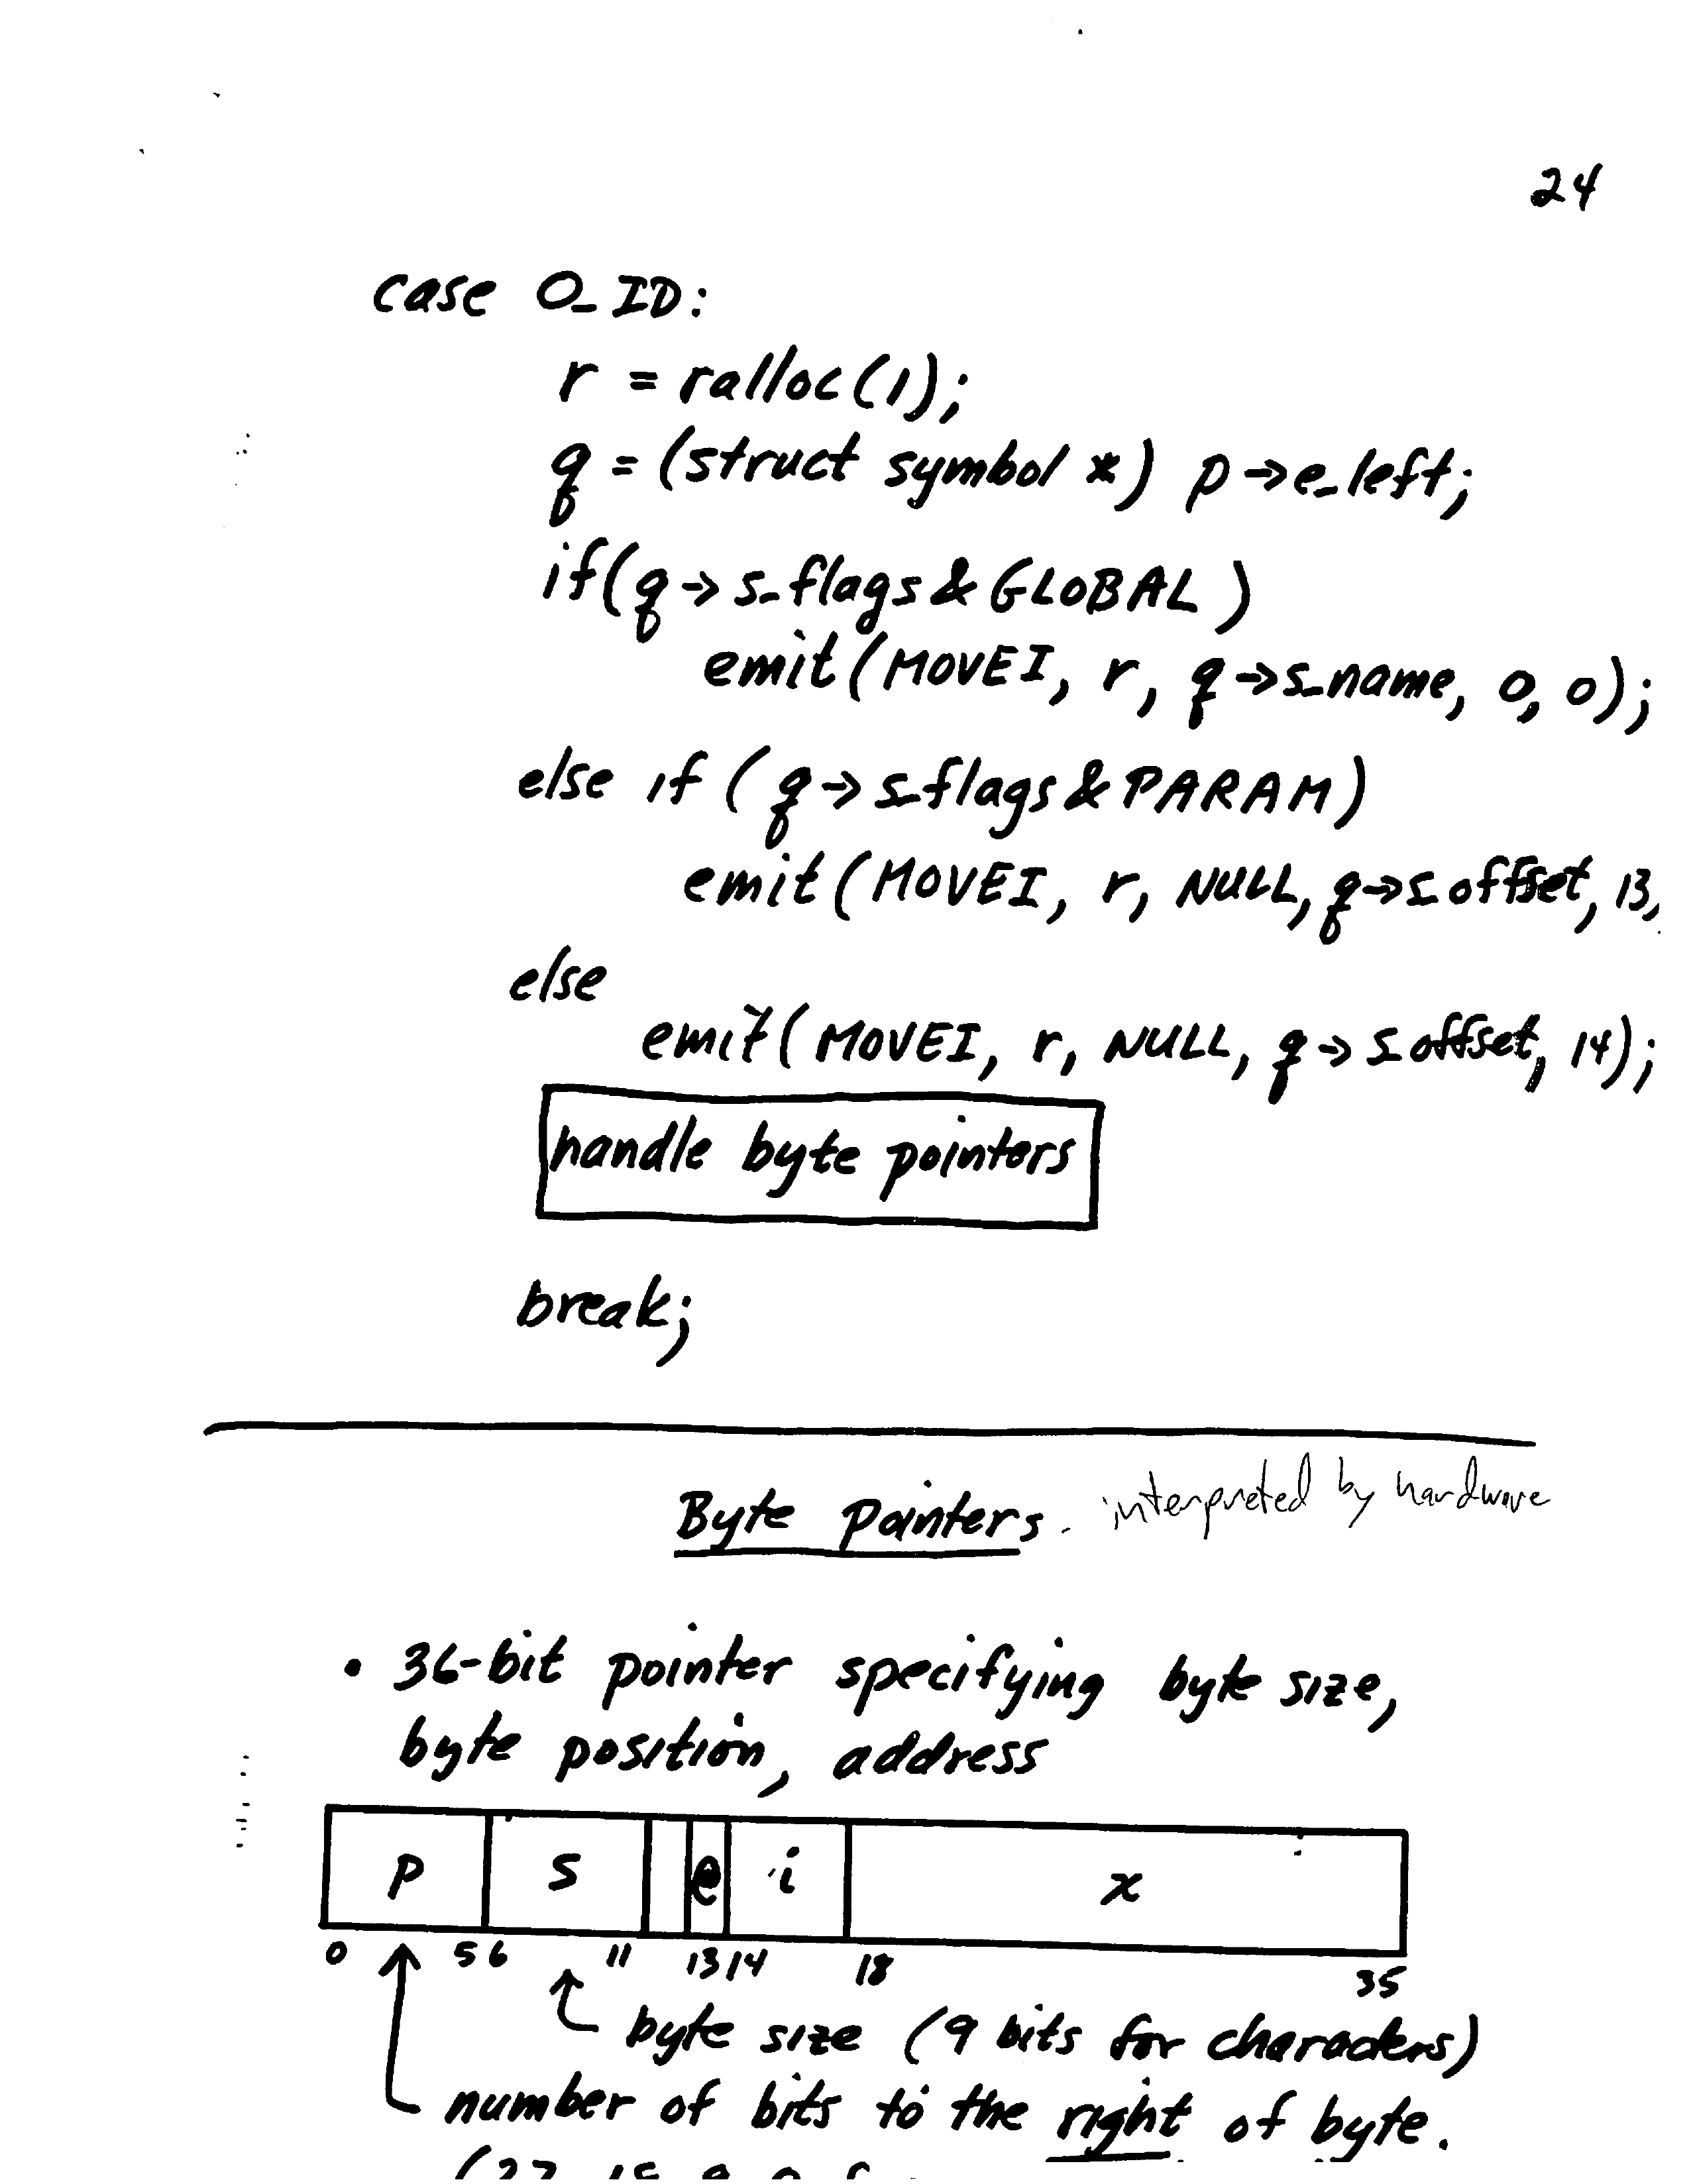 24
case O_ID:
r = ralloc(1);
q = (struct symbol *) p->e_left;
if(q->s_flags & GLOBAL)
emit(MOVEI, r, q->s_name, 0, 0);
else if (q->s_flags & PARAM)
emit(MOVEI, r, NULL, q->s_offset, 13,
else
emit(MOVEI, r, NULL, q->s_offset, 14);
handle byte pointers
break;
Byte Pointers - interpreted by hardware
• 36-bit pointer specifying byte size,
byte position, address
p s e i x
0 5 6 11 13 14 18 35
byte size (9 bits for characters)
number of bits to the right of byte.